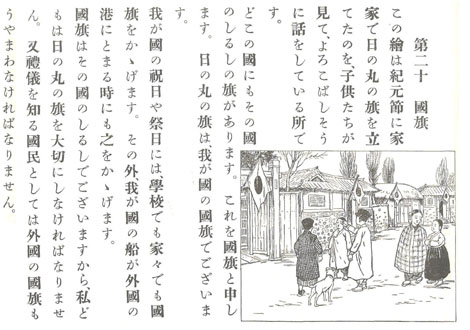 第二十 國旗
この繪は紀元節に家
家で日の丸の旗を立
てたのを、子供たちが
見て、よろこばしそう
に話をしている所で
す。
どこの國にもその國
のしるしの旗があります。これを國旗と申し
ます。日の丸の旗は、我が國の國旗でございま
す。
我が國の祝日や祭日には學校でも家々でも國
旗をかゝげます。その外我が國の船が外國の
港にとまる時にも之をかゝげます。
國旗はその國のしるしでございますから、私ど
もは日の丸の旗を大切にしなければなりませ
ん。又禮儀を知る國民としては外國の國旗も
うやまわなければなりません。